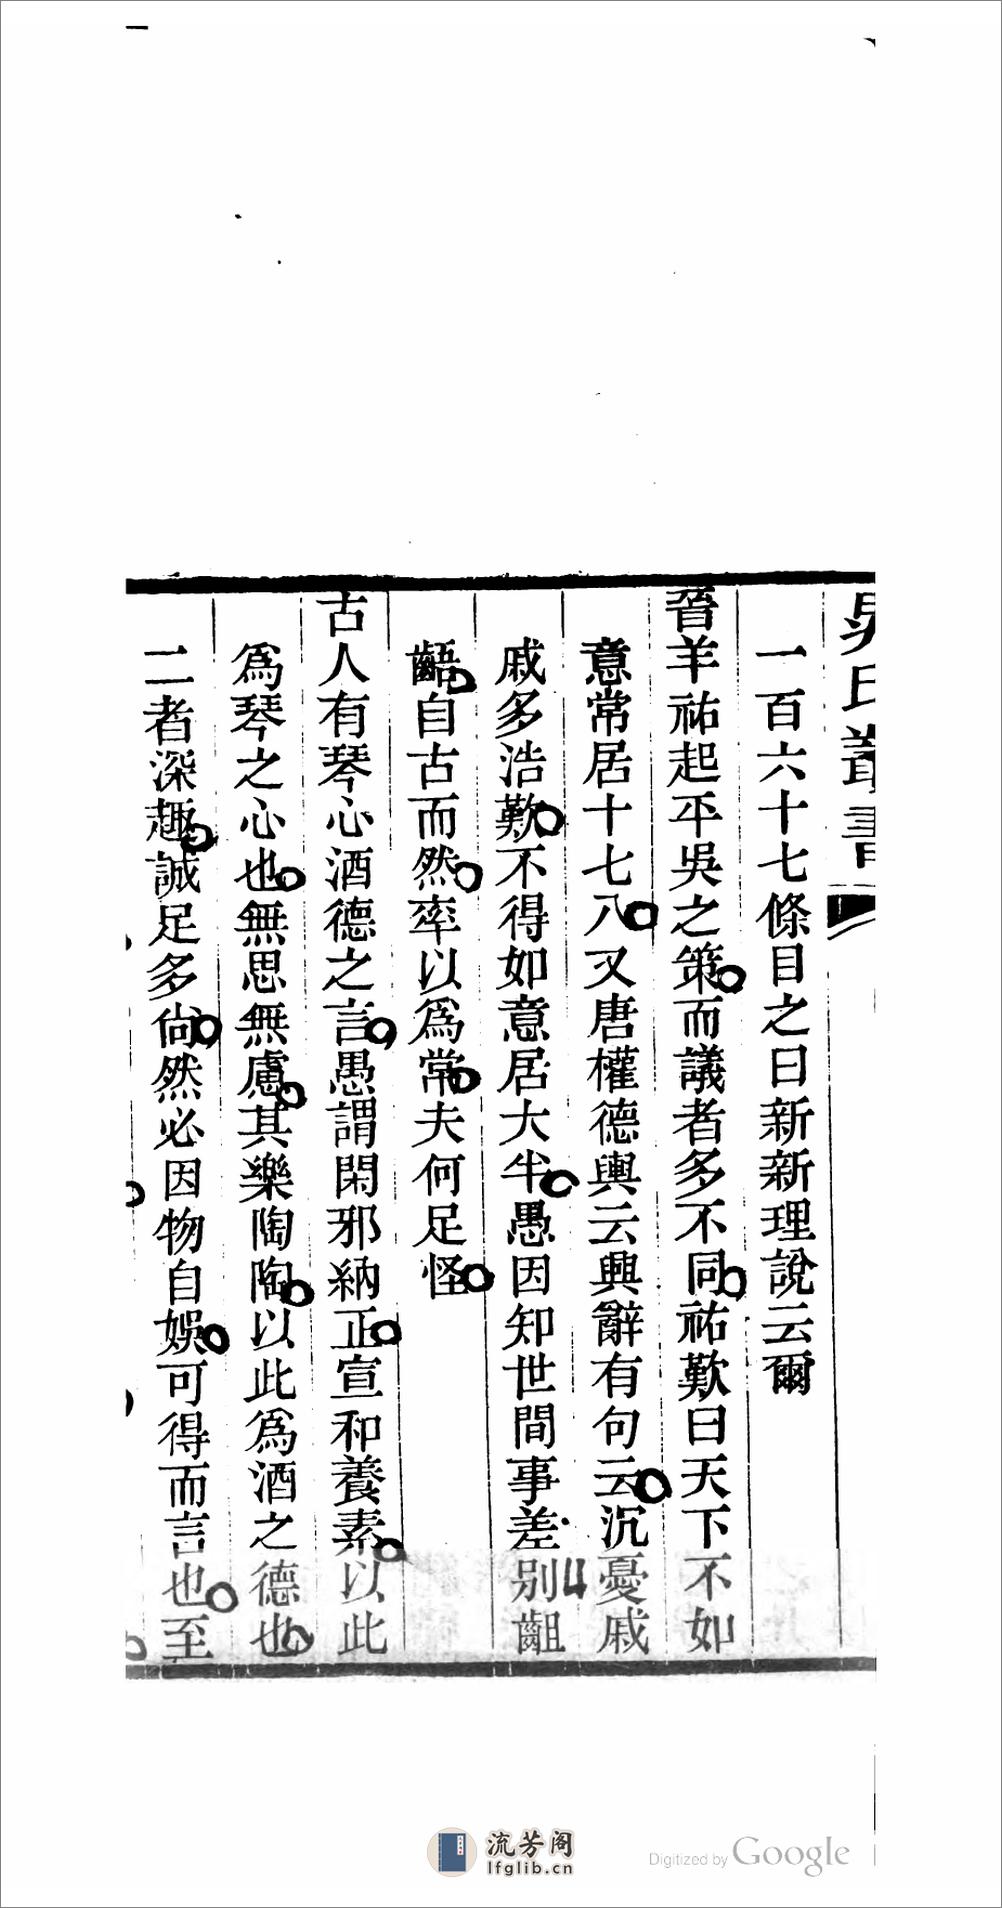 一百六十七條目之曰新新理說云爾
晉羊祐起平吳之策而議者多不同祐歎曰天下不如
意常居十七八又唐權德輿云興辭有句云沉憂戚
戚多浩歎不得如意居大半愚因知世間事差別齟
齬自古而然率以爲常夫何足怪
古人有琴心酒德之言愚謂閑邪納正宣和養素以此
爲琴之心也無思無慮其樂陶陶以此爲酒之德也
二者深趣誠足多尙然必因物自娛可得而言也至
流芳阁
lfglib.cn
Digitized by Google